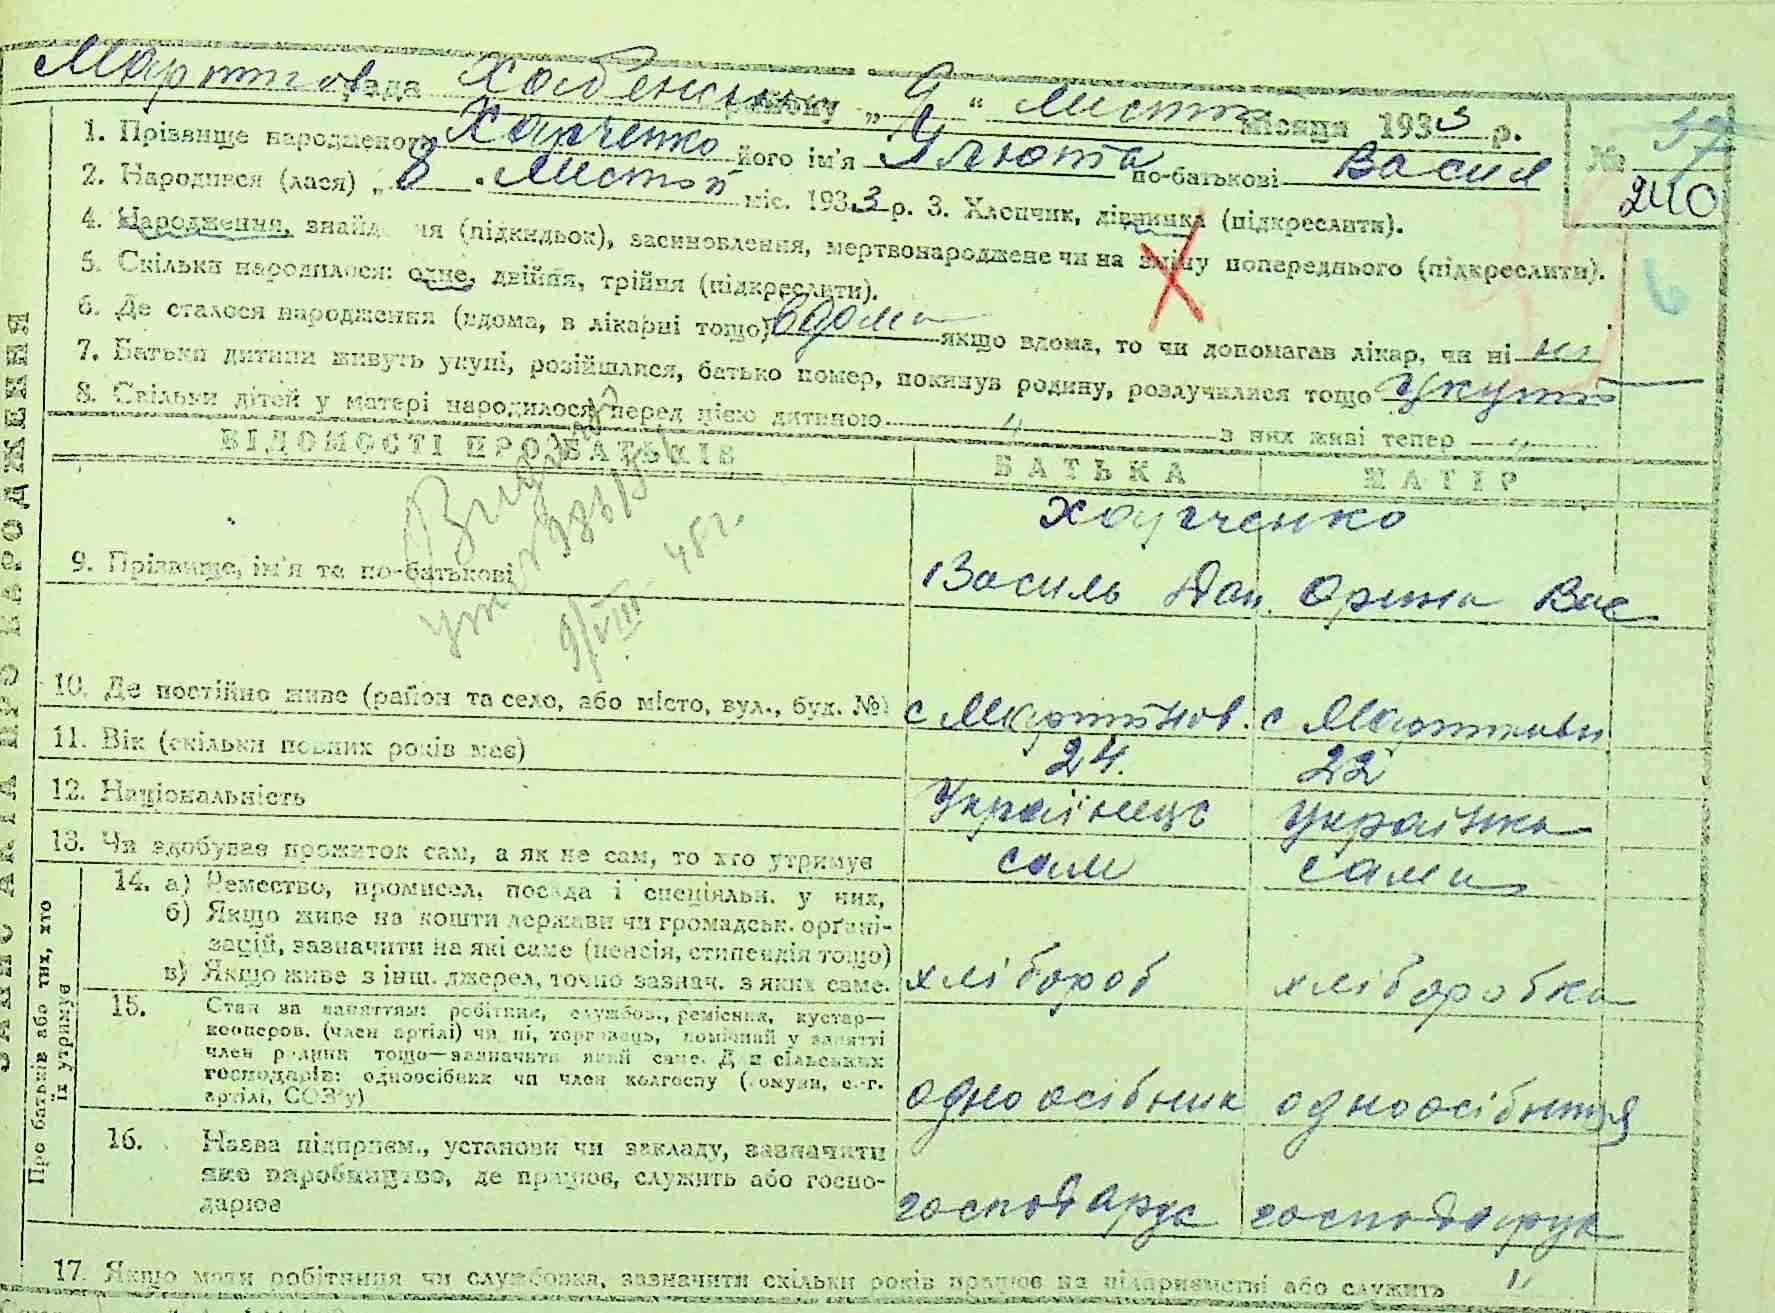 рада Хабенськ району „9“ листп місяця 1933 р.
1. Прізвище народженого Харченко його ім'я по-батькові Васил
№ 37
240
2. Народився (лася) „8 . Листоп міс. 1933 р. 3. Хлопчик, дівчинка (підкреслити).
4. Народження, знайд чя (підкидьок), засиновлення, мертвонароджене чи на зміну попереднього (підкреслити).
5. Скільки народилося: одне, двійня, трійня (підкреслити).
6
6. Де сталося народження (вдома, в лікарні тощо) вдома якщо вдома, то чи допомагав лікар, чи ні ні
7. Батьки дитини живуть укупі, розійшлися, батько помер, покинув родину, розлучилися тощо укупі
8. Скільки дітей у матері народилося перед цією дитиною „ з них живі тепер „
ВІДОМОСТІ ПРО БАТЬКІВ БАТЬКА МАТІР
9/VIII 45 г.
Харченко
9. Прізвище, ім'я та по-батькові Василь Дан. Орина Вас
10. Де постійно живе (район та село, або місто, вул., буд. №) с Мартинов. с Мартинови
11. Вік (скільки повних років має) 24. 22
12. Національність Українець українка
13. Чи здобуває прожиток сам, а як не сам, то хто утримує сам сама
Про батьків або тих, хто їх утримує
14. а) Ремество, промисел, посада і спеціяльн. у них,
б) Якщо живе на кошти держави чи громадськ. орґані-
зацій, зазначити на які саме (пенсія, стипендія тощо)
в) Якщо живе з інш. джерел, точно зазнач. з яких саме. хлібороб хліборобка
15. Стан за заняттям: робітник, службов., ремісник, кустар—
кооперов. (член артілі) чи ні, торговець, помічний у занятті
член родини тощо—зазначити який саме. Для сільських
господарів: одноосібник чи член колгоспу (комуни, с.-г.
артілі, СОЗ'у) одноосібник одноосібниця
16. Назва підприєм., установи чи закладу, зазначити
яке виробництво, де працює, служить або госпо-
дарює господарює господарює
17. Якщо мати робітниця чи службовка, зазначити скільки років працює на підприємстві або служить „